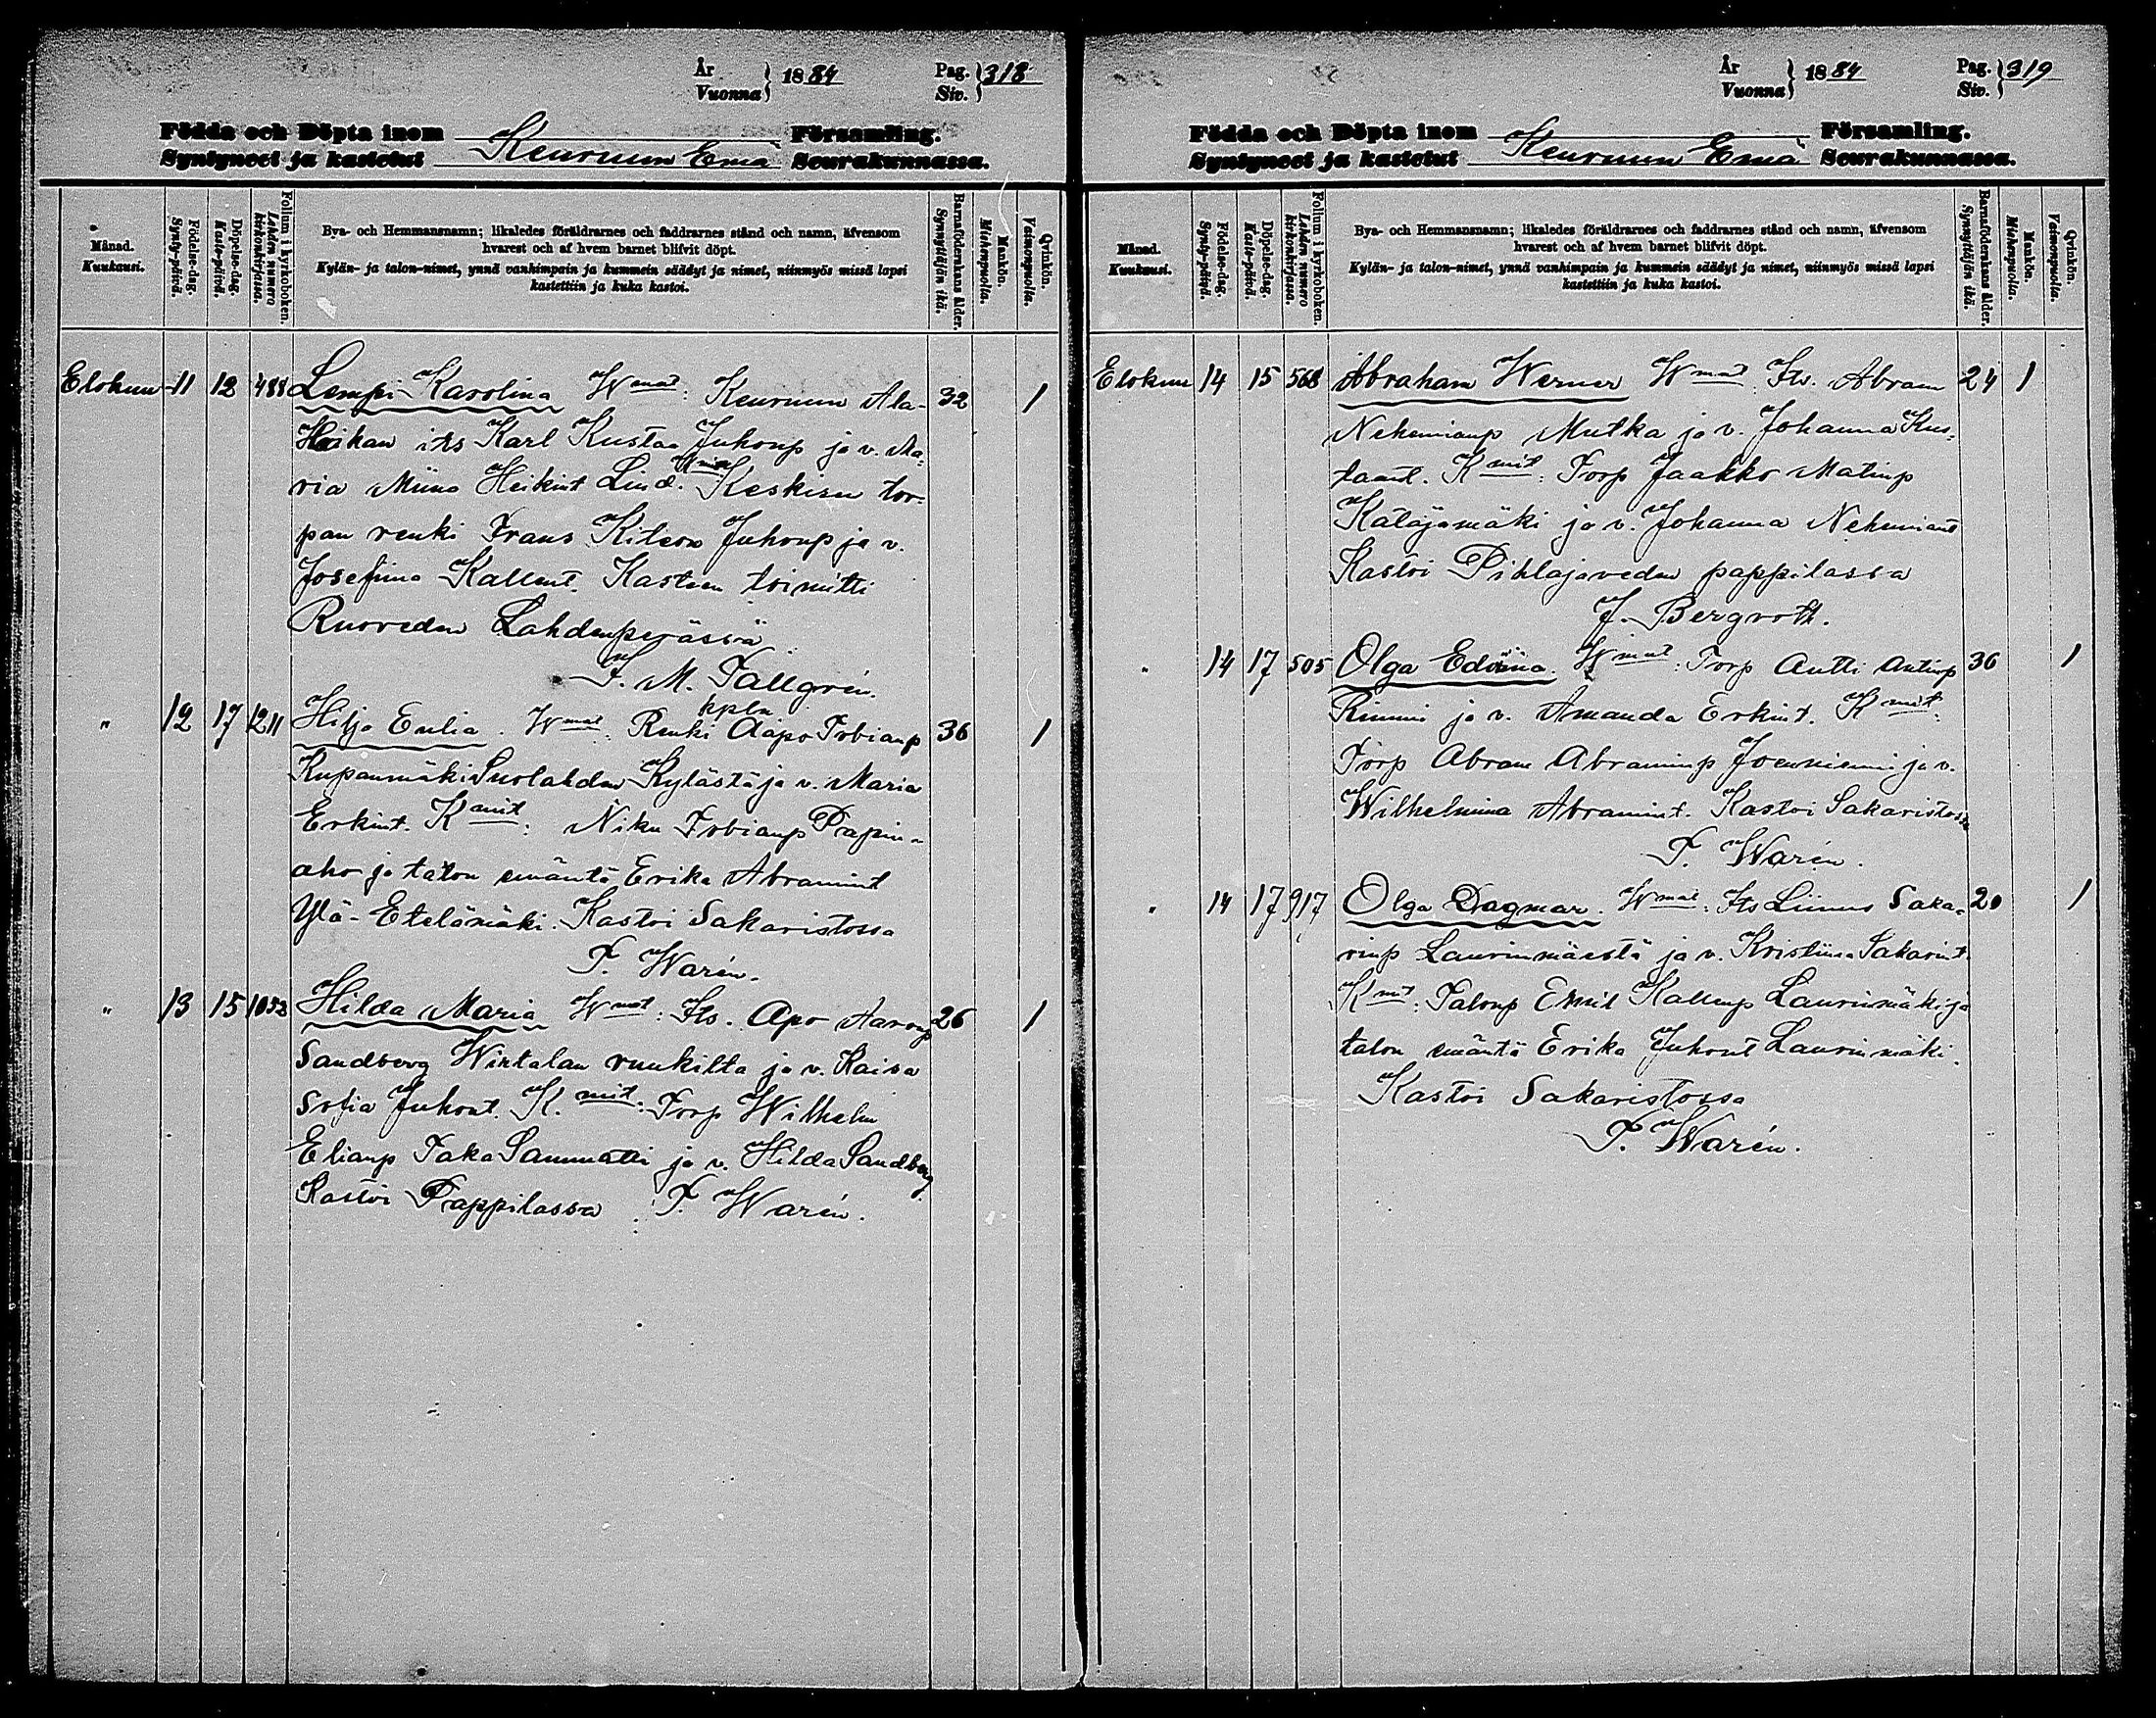 År
Vuonna } 1884 Pag.
Siv. } 318
Födda och Döpta inom Församling.
Syntyneet ja kastetut Keuruun Emä Seurakunnassa.
Månad.
Kuukausi.
Födelse-dag.
Synty-päivä.
Döpelse-dag.
Kaste-päivä.
Folium i kyrkoboken.
Lehden numero kirkonkirjassa.
Bya- och Hemmansnamn; likaledes föräldrarnes och faddrarnes stånd och namn, äfvensom
hvarest och af hvem barnet blifvit döpt.
Kylän- ja talon-nimet, ynnä vanhimpain ja kummein säädyt ja nimet, niinmyös missä lapsi
kastettiin ja kuka kastoi.
Barnaföderskans ålder.
Synnyttäjän ikä.
Mankön.
Miehenpuolia.
Qvinkön.
Vaimonpuolia.
Elokuu 11 12 488 Lempi Karolina Wmat: Keuruun Ala- 32 1
Heikan its Karl Kustaa Juhonp ja v. Ma-
ria Miina Heikint Lind. Kmit Keskisen tor-
pan renki Frans Juhonp ja v.
Josefiina Kallent. Kasteen toimitti
Ruoveden Lahdenperässä
F. M. Tallgrén.
kpln
" 12 17 1211 Hilja Eulia. Wmat: Renki Aapo Tobianp 36 1
Kupanmäki Suolahden Kylästä ja v. Maria
Erkint. Kmit: Niku Tobianp Papin-
aho ja talon emäntä Erika Abramint
Ylä-Eteläniäki. Kastoi Sakaristossa
F. Warén.
" 13 15 1053 Hilda Maria Wmat: Its. Apo Aaronp 26 1
Sandberg Wirtalan ruukilta ja v. Kaisa
Sofia Juhont. K.mit: Torp Wilhelm
Elianp Taka Sammatti ja v. Hilda Sandberg
Kastoi Pappilassa F. Warén.
År
Vuonna } 1884 Pag.
Siv. } 319
Födda och Döpta inom Församling.
Syntyneet ja kastetut Keuruun Emä Seurakunnassa.
Månad.
Kuukausi.
Födelse-dag.
Synty-päivä.
Döpelse-dag.
Kaste-päivä.
Folium i kyrkoboken.
Lehden numero kirkonkirjassa.
Bya- och Hemmansnamn; likaledes föräldrarnes och faddrarnes stånd och namn, äfvensom
hvarest och af hvem barnet blifvit döpt.
Kylän- ja talon-nimet, ynnä vanhimpain ja kummein säädyt ja nimet, niinmyös missä lapsi
kastettiin ja kuka kastoi.
Barnaföderskans ålder.
Synnyttäjän ikä.
Mankön.
Miehenpuolia.
Qvinkön.
Vaimonpuolia.
Elokuu 14 15 568 Abraham Werner Wmat Its. Abram 24 1
Nehemianp Mutka ja v. Johanna Kus-
taant. Kmit: Torp Jaakko Matinp
Katajamäki ja v. Johanna Nehemiant
Kastoi Pihlajaveden pappilassa
J. Bergroth.
" 14 17 505 Olga Edviina Wmat: Torp Antti Antinp 36 1
Rimmi ja v. Amanda Erkint. Kmit:
Torp Abram Abraminp Joenniemi ja v.
Wilhelmina Abramint. Kastoi Sakaristossa
F. Warén.
" 14 17 917 Olga Dagmar. Wmat: Its Liinus Saka- 20 1
rinp Laurinmäestä ja v. Kristiina Sakarint.
Kmit: Talonp Emil Kallenp Laurinmäki ja
talon emäntä Erika Juhont Laurinmäki.
Kastoi Sakaristossa
F. Warén.